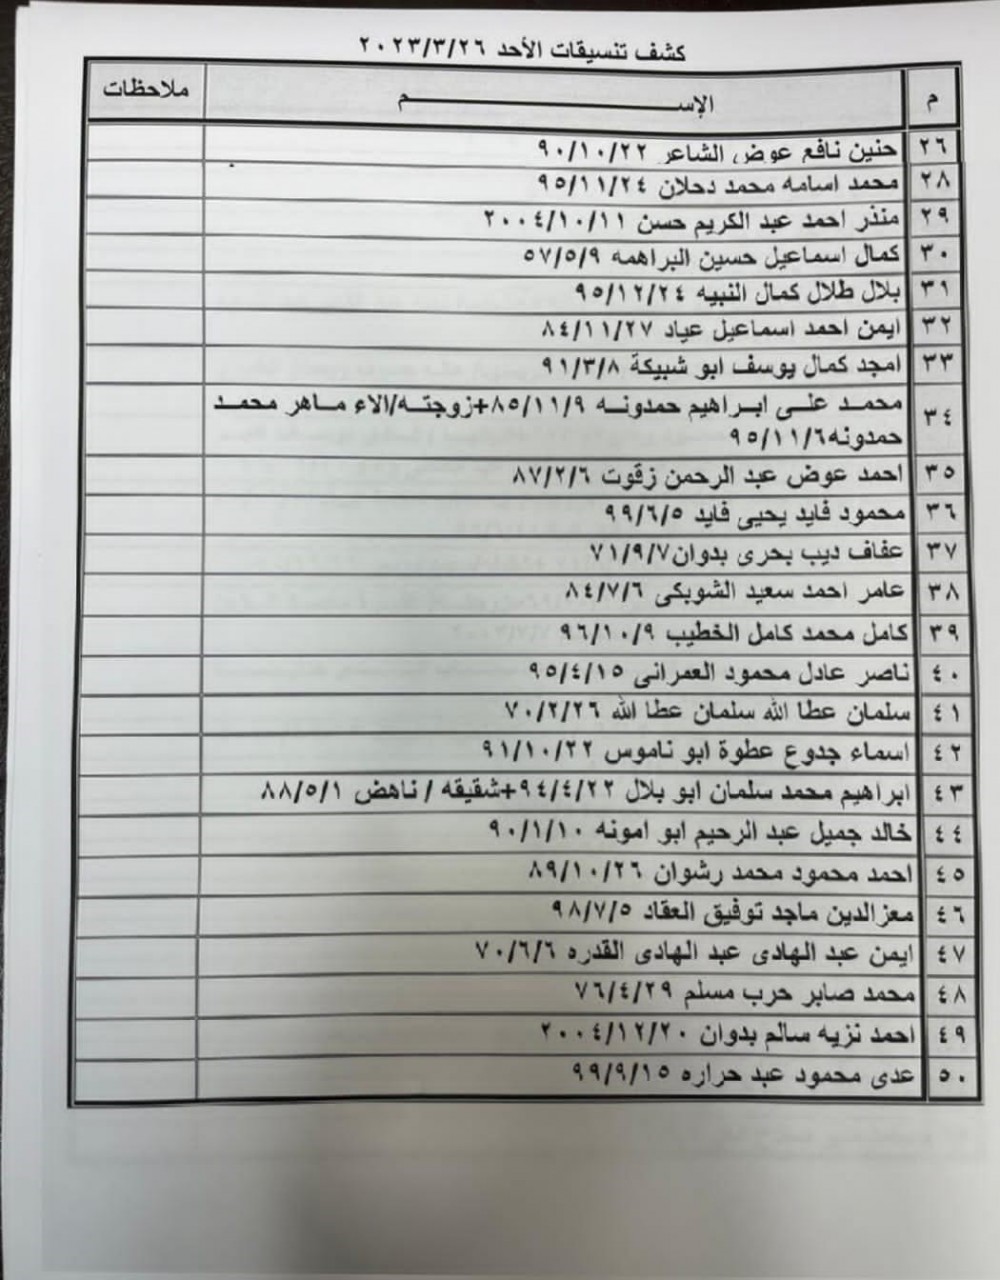 كشف تنسيقات الأحد ٢٠٢٣/٣/٢٦
م الإســـــم ملاحظات
٢٦ حنين نافع عوض الشاعر ٩٠/١٠/٢٢
٢٨ محمد اسامه محمد دحلان ٩٥/١١/٢٤
٢٩ منذر احمد عبد الكريم حسن ٢٠٠٤/١٠/١١
٣٠ كمال اسماعيل حسين البراهمه ٥٧/٥/٩
٣١ بلال طلال كمال النبيه ٩٥/١٢/٢٤
٣٢ ايمن احمد اسماعيل عياد ٨٤/١١/٢٧
٣٣ امجد كمال يوسف ابو شبيكة ٩١/٣/٨
٣٤ محمد على ابراهيم حمدونه ٨٥/١١/٩+زوجته/الاء ماهر محمد
حمدونه٩٥/١١/٦
٣٥ احمد عوض عبد الرحمن زقوت ٨٧/٢/٦
٣٦ محمود فايد يحيى فايد ٩٩/٦/٥
٣٧ عفاف ديب بحرى بدوان٧١/٩/٧
٣٨ عامر احمد سعيد الشوبكى ٨٤/٧/٦
٣٩ كامل محمد كامل الخطيب ٩٦/١٠/٩
٤٠ ناصر عادل محمود العمرانى ٩٥/٤/١٥
٤١ سلمان عطا الله سلمان عطا الله ٧٠/٢/٢٦
٤٢ اسماء جدوع عطوة ابو ناموس ٩١/١٠/٢٢
٤٣ ابراهيم محمد سلمان ابو بلال ٩٤/٤/٢٢+شقيقه / ناهض ٨٨/٥/١
٤٤ خالد جميل عبد الرحيم ابو امونه ٩٠/١/١٠
٤٥ احمد محمود محمد رشوان ٨٩/١٠/٢٦
٤٦ معزالدين ماجد توفيق العقاد ٩٨/٧/٥
٤٧ ايمن عبد الهادى عبد الهادى القدره ٧٠/٦/٦
٤٨ محمد صابر حرب مسلم ٧٦/٤/٢٩
٤٩ احمد نزيه سالم بدوان ٢٠٠٤/١٢/٢٠
٥٠ عدى محمود عبد حراره ٩٩/٩/١٥